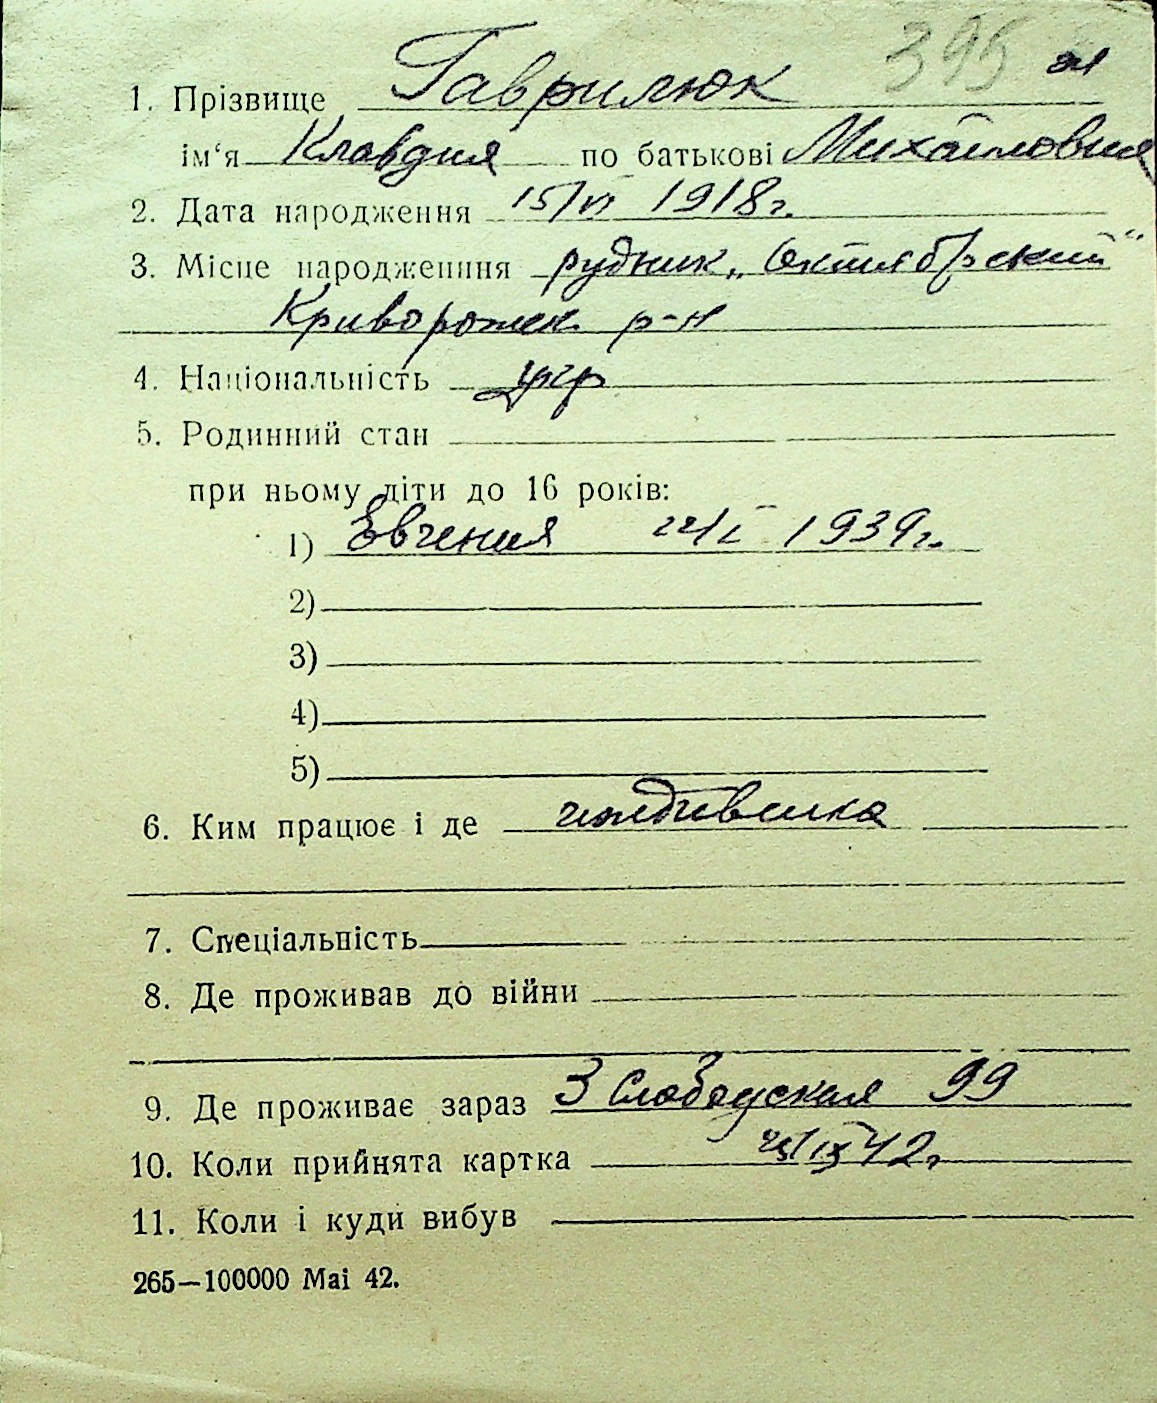 395
1. Прізвище Гаврилюк
ім‘я Клавдия по батькові Михайловна
2. Дата народження 15/VI 1918 г.
3. Місце народженння рудник „Октябрьский“
Криворожск. р-н
4. Національність укр
5. Родинний стан
при ньому діти до 16 років:
1) Евгения 22/I 1939 г.
2)
3)
4)
5)
6. Ким працює і де иждивенка
7. Спеціальність
8. Де проживав до війни
9. Де проживає зараз 3 Слободская 99
10. Коли прийнята картка IX 42 г.
11. Коли і куди вибув
265—100000 Mai 42.